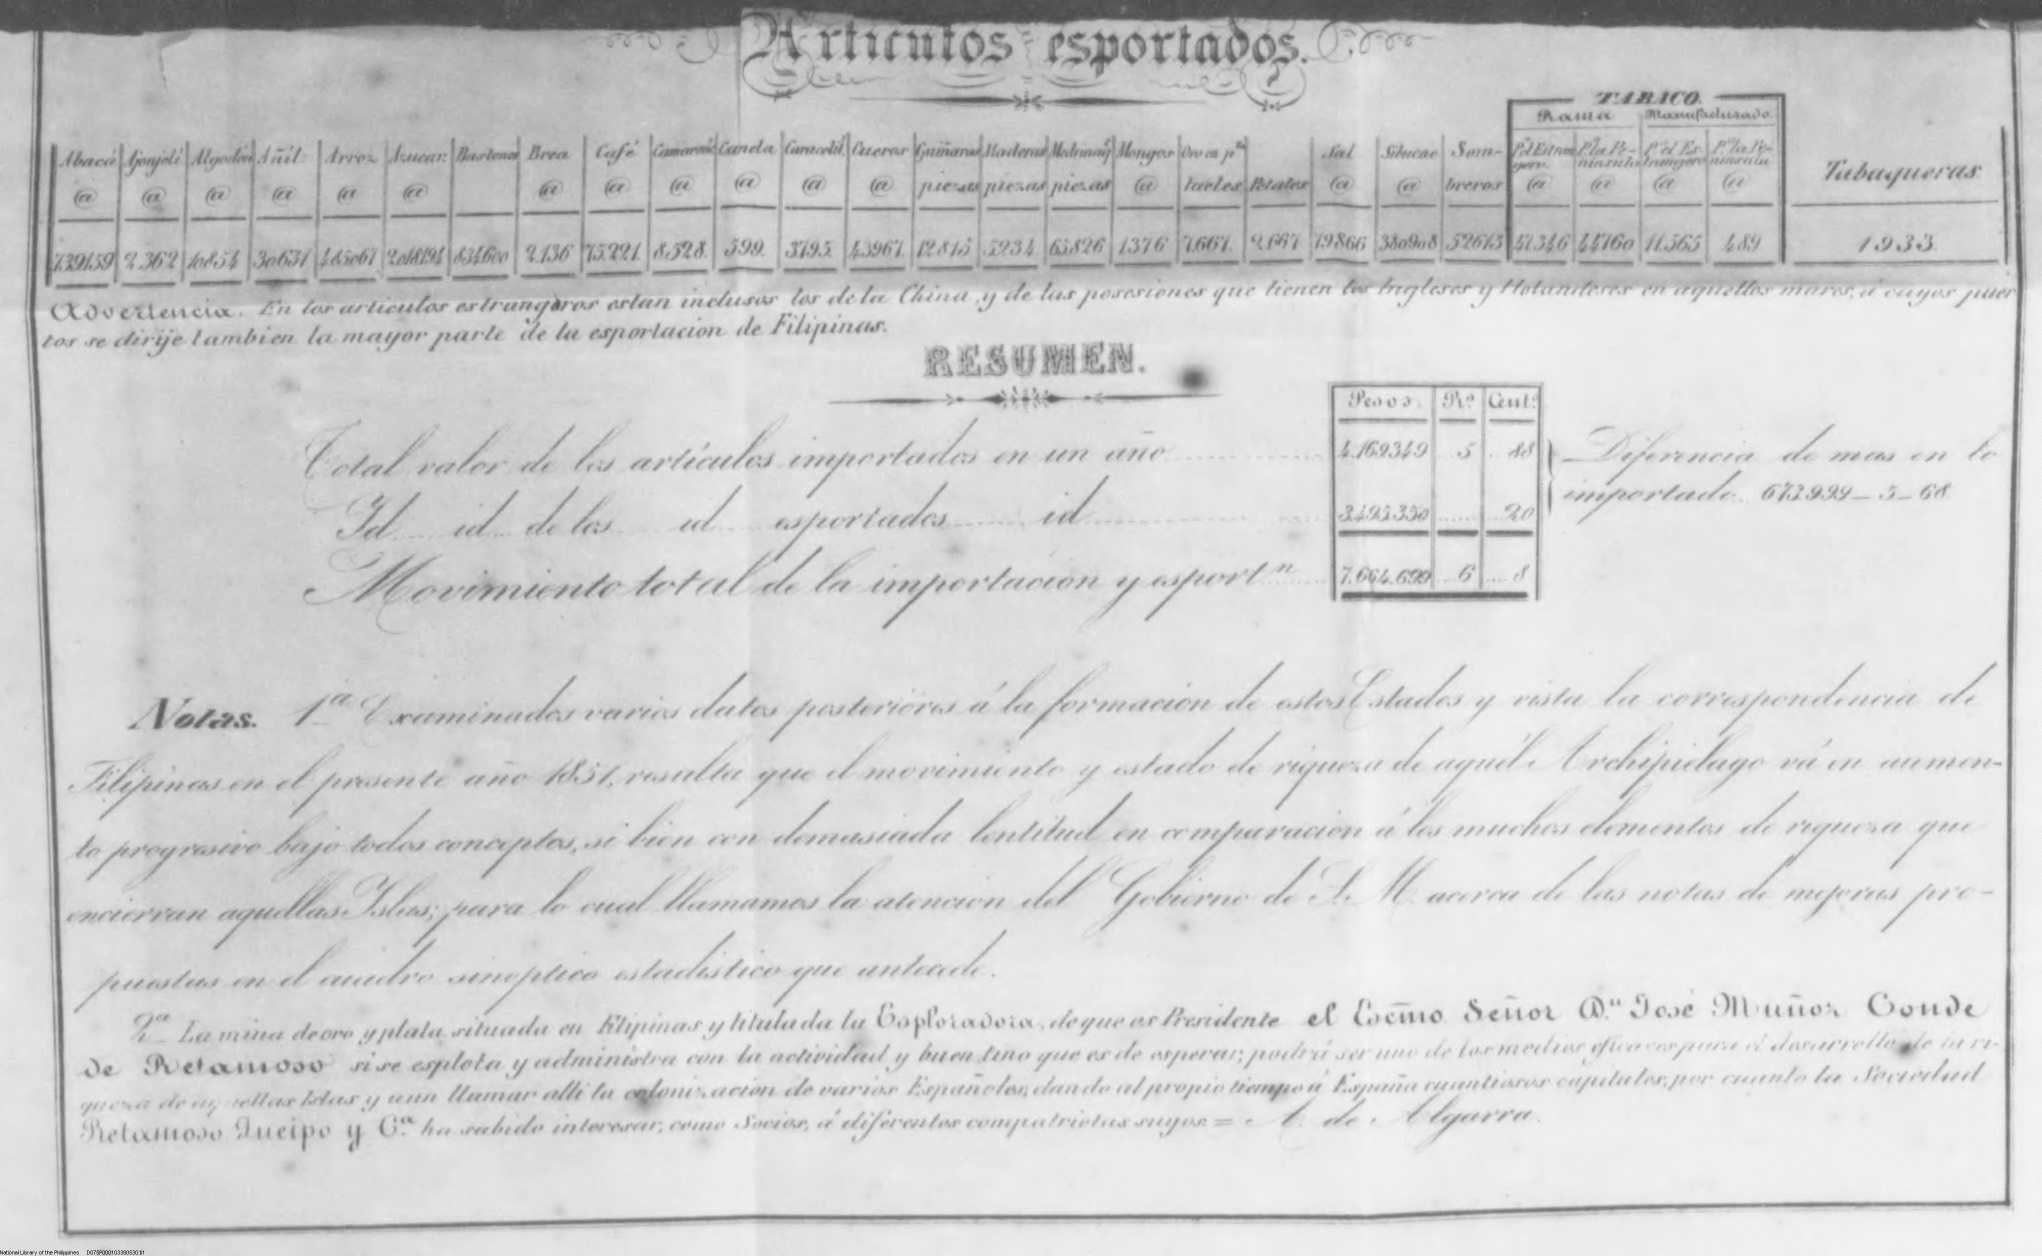 Articulos esportados.
TABACO.
Rama Manufacturado
Abacá Ajonjolí Algodón Añil Arroz Azucar Bastones Brea Café Camarón Canela Caracolill Cueros Guiñaras Maderas Medriñaq Mongos Oro en p.º Sal Sibucao Som- P.ª el Estran P.ª la Pe- P.ª el Es- P.ª la Pe- Tabaqueras
@ @ @ @ @ @ @ @ @ @ @ @ piezas piezas piezas @ taeles Petates @ @ breros gero. @ ninsula @ trangero @ ninsula @
739159 2.362 10854 30631 485067 2.018194 834600 2.136 75.221 8.528 599. 3795. 43967. 12815 5234 65826 1376 7.667. 2.667 79866 380908 52613 47.346 44760 11.565 489 1933
Advertencia. En los articulos estrangeros estan inclusos los de la China y de las posesiones que tienen los Ingleses y Holandeses en aquellos mares, á cuyos puer
tos se dirije tambien la mayor parte de la esportacion de Filipinas.
RESUMEN.
Pesos. R.s Cent.s
Total valor de los artículos importados en un año 4.169349 5 88
Id id de los id esportados id 3.495.350 20
Diferencia de mas en lo
importado 673.999_5_68
Movimiento total de la importación y esport.n 7.664.699 6 8
Notas. 1.ª Examinados varios datos posteriores á la formacion de estos Estados y vista la correspondencia de
Filipinas en el presente año 1851, resulta que el movimiento y estado de riqueza de aquél Archipielago vá en aumen-
to progresivo bajo todos conceptos, si bien con demasiada lentitud en comparacion á los muchos elementos de riqueza que
encierran aquellas Islas; para lo cual llamamos la atencion del Gobierno de S. M. acerca de las notas de mejoras pro-
puestas en el cuadro sinoptico estadístico que antecede.
2.ª La mina de oro y plata situada en Filipinas y titulada la Esploradora, de que es Presidente el Escmo Señor D.n José Muñoz Conde
de Retamoso si se esplota y administra con la actividad y buen tino que es de esperar; podrá ser uno de los medios eficaces para el desarrollo de la ri-
queza de aquellas Islas y aun llamar alli la colonizacion de varios Españoles, dando al propio tiempo á España cuantiosos capitales, por cuanto la Sociedad
Retamoso Queipo y C.ª ha sabido interesar, como Socios, á diferentes compatriotas suyos = A. de Algarra.
National Library of the Philippines